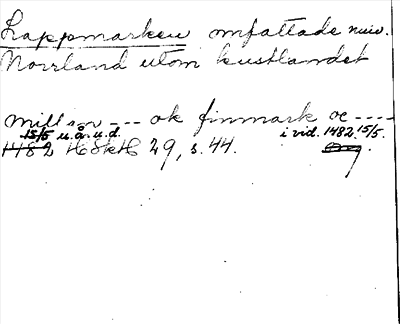 Lappmarken omfattade nuv.
Norrland utom kustlandet
mill son --- ok finmark oc ----
15/5 u.å.u.d. i vid. 1482 15/5.
1482 HSkH 29, s. 44.